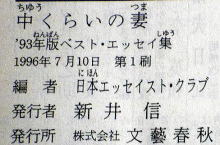 中くらいの妻
'93年版ベスト・エッセイ集
1996年7月10日 第1刷
編者 日本エッセイスト・クラブ
発行者 新井信
発行所 株式会社 文藝春秋